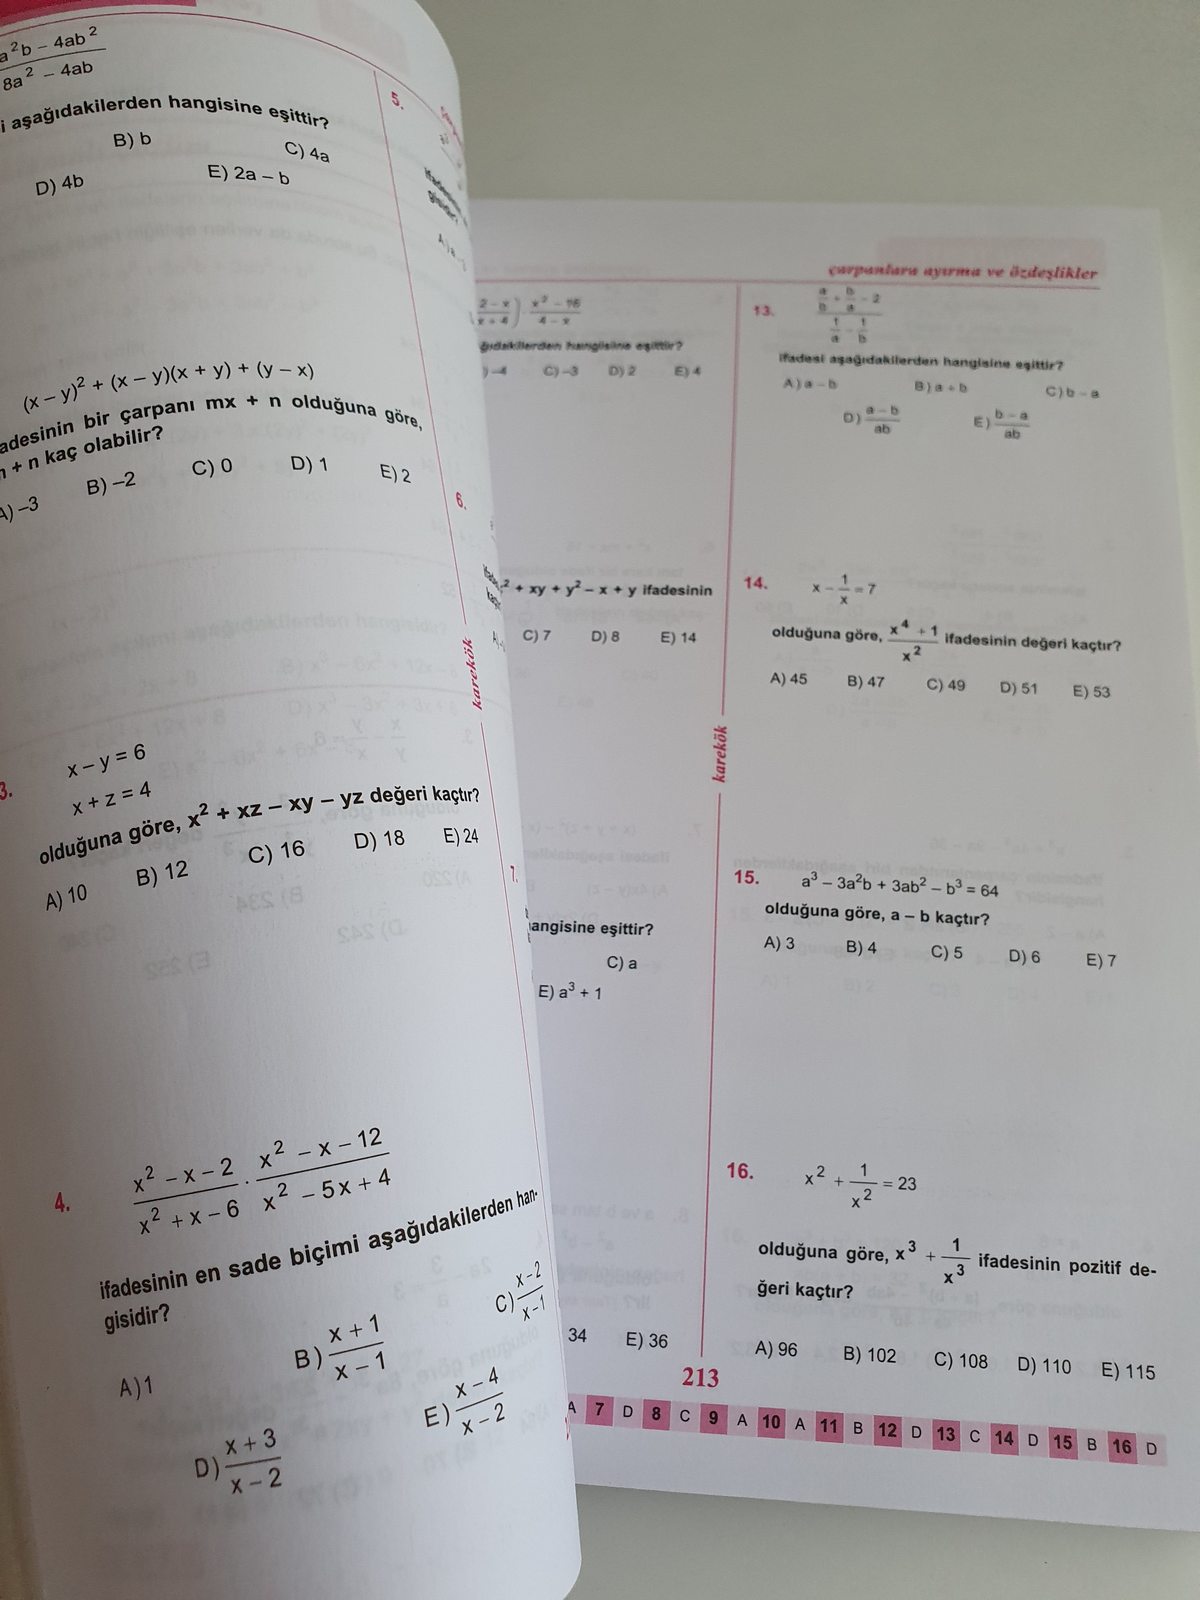 a²b – 4ab²
8a² – 4ab
i aşağıdakilerden hangisine eşittir?
B) b
C) 4a
D) 4b
E) 2a – b
(x – y)² + (x – y)(x + y) + (y – x)
adesinin bir çarpanı mx + n olduğuna göre,
+ n kaç olabilir?
A) –3
B) –2
C) 0
D) 1
E) 2
3.
x – y = 6
x + z = 4
olduğuna göre, x² + xz – xy – yz değeri kaçtır?
A) 10
B) 12
C) 16
D) 18
E) 24
4.
x² – x – 2 / x² + x – 6 · x² – x – 12 / x² – 5x + 4
ifadesinin en sade biçimi aşağıdakilerden han-
gisidir?
A) 1
B) x + 1 / x – 1
C) x – 2 / x – 1
D) x + 3 / x – 2
E) x – 4 / x – 2
5.
6.
karekök
7.
çarpanlara ayırma ve özdeşlikler
2 – x / x + 4) · x² – 16 / 4 – x
ğıdakilerden hangisine eşittir?
) –4
C) –3
D) 2
E) 4
² + xy + y² – x + y ifadesinin
C) 7
D) 8
E) 14
angisine eşittir?
C) a
E) a³ + 1
34
E) 36
karekök
13.
a/b + b/a – 2
1/a – 1/b
ifadesi aşağıdakilerden hangisine eşittir?
A) a – b
B) a + b
C) b – a
D) a – b / ab
E) b – a / ab
14.
x – 1/x = 7
olduğuna göre, x⁴ + 1 / x² ifadesinin değeri kaçtır?
A) 45
B) 47
C) 49
D) 51
E) 53
15.
a³ – 3a²b + 3ab² – b³ = 64
olduğuna göre, a – b kaçtır?
A) 3
B) 4
C) 5
D) 6
E) 7
16.
x² + 1/x² = 23
olduğuna göre, x³ + 1/x³ ifadesinin pozitif de-
ğeri kaçtır?
A) 96
B) 102
C) 108
D) 110
E) 115
213
A 7 D 8 C 9 A 10 A 11 B 12 D 13 C 14 D 15 B 16 D